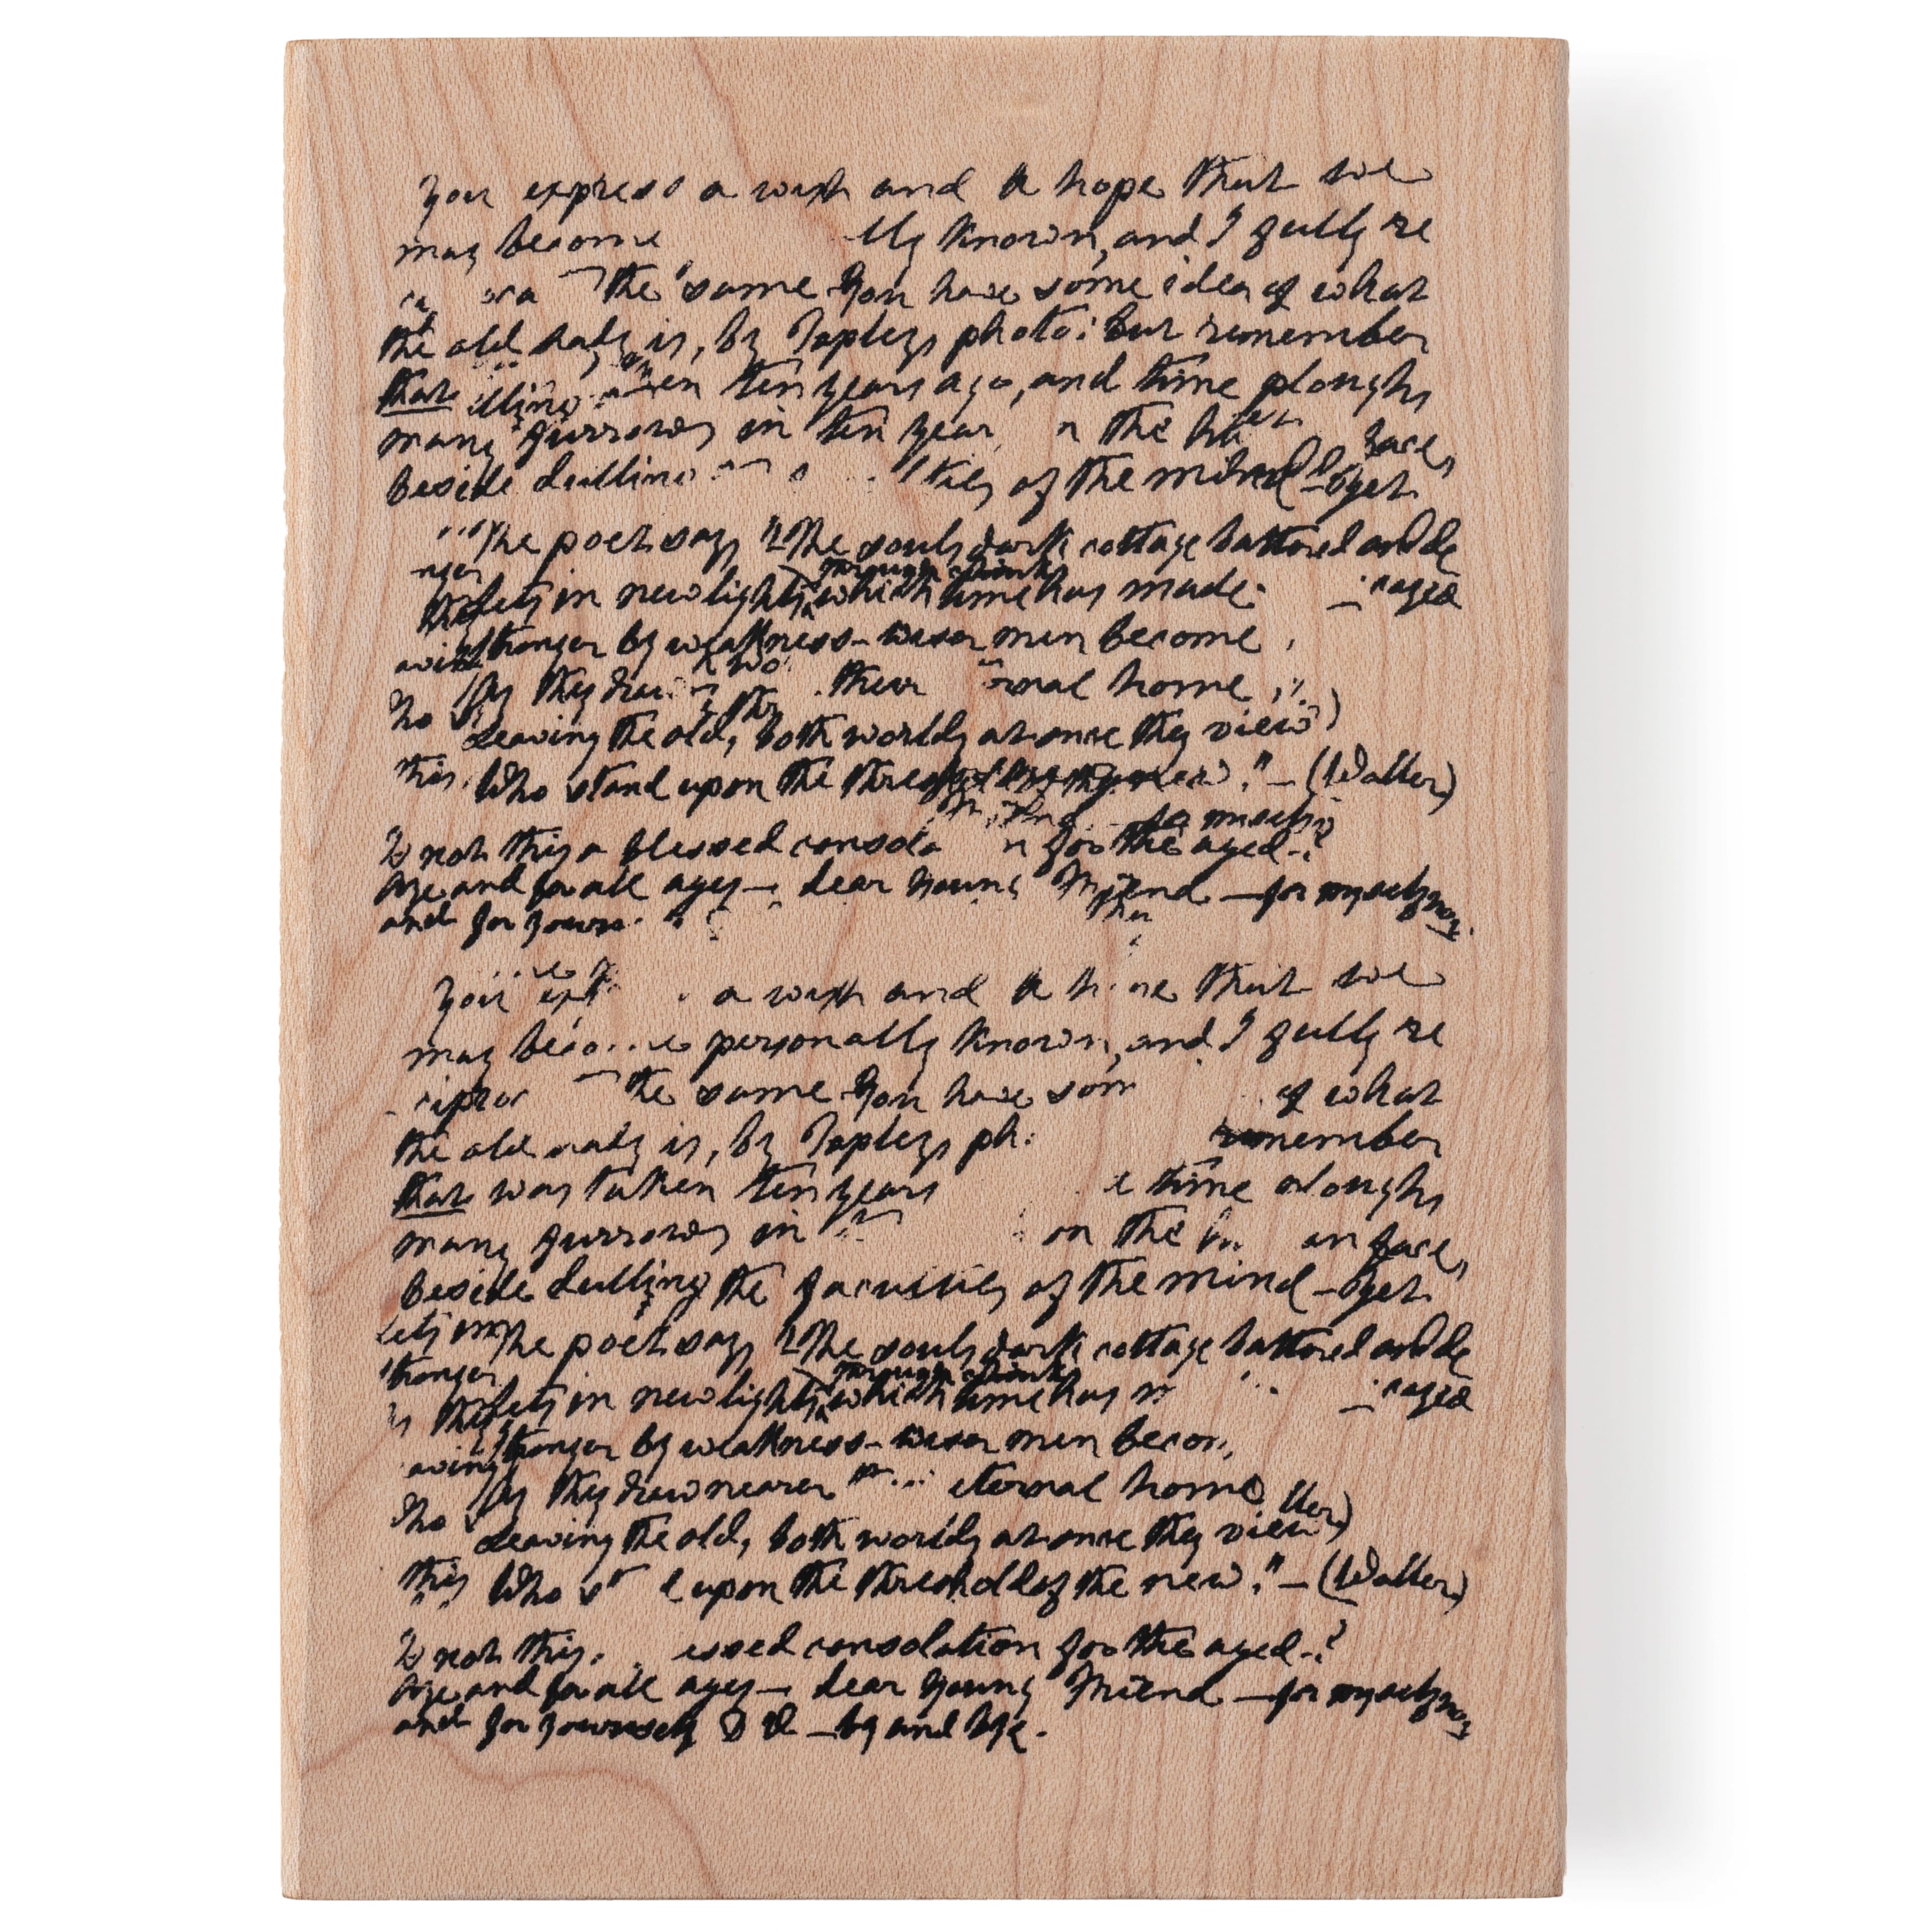 You express a wish and a hope that we
may become lly known, and I fully re
the same You have some idea of what
the old lady is, by Tapleys photo: but remember
that en ten years ago, and time ploughs
many furrows in ten year n the face,
beside dulling ties of the mind – yet
The poet says "The souls dark cottage battered and de
nger
lets in new light, through chinks which time has made. caged
stronger by weakness – wiser men become
As they their rnal home,
Who
Leaving the old, both worlds at once they view
this Who stand upon the new." – (Waller)
Is not this a blessed consola n for the aged –?
age and for all ages – dear young friend – for myself now
and for yours
You a wish and a that we
may personally known, and I fully re
the same You have som of what
the old lady is, by Tapleys ph remember
that was taken ten years time ploughs
many furrows in on the an face,
beside dulling the faculties of the mind – yet
The poet says "The souls dark cottage battered and de
tronger
lets in new light, through chinks which time has caged
stronger by weakness – wiser men becom
As they draw nearer eternal home
Who ller)
Leaving the old, both worlds at once they view
this Who upon the threshold of the new." – (Waller)
Is not this essed consolation for the aged –?
age and for all ages – dear young friend – for myself now
and for yourself – by and bye.